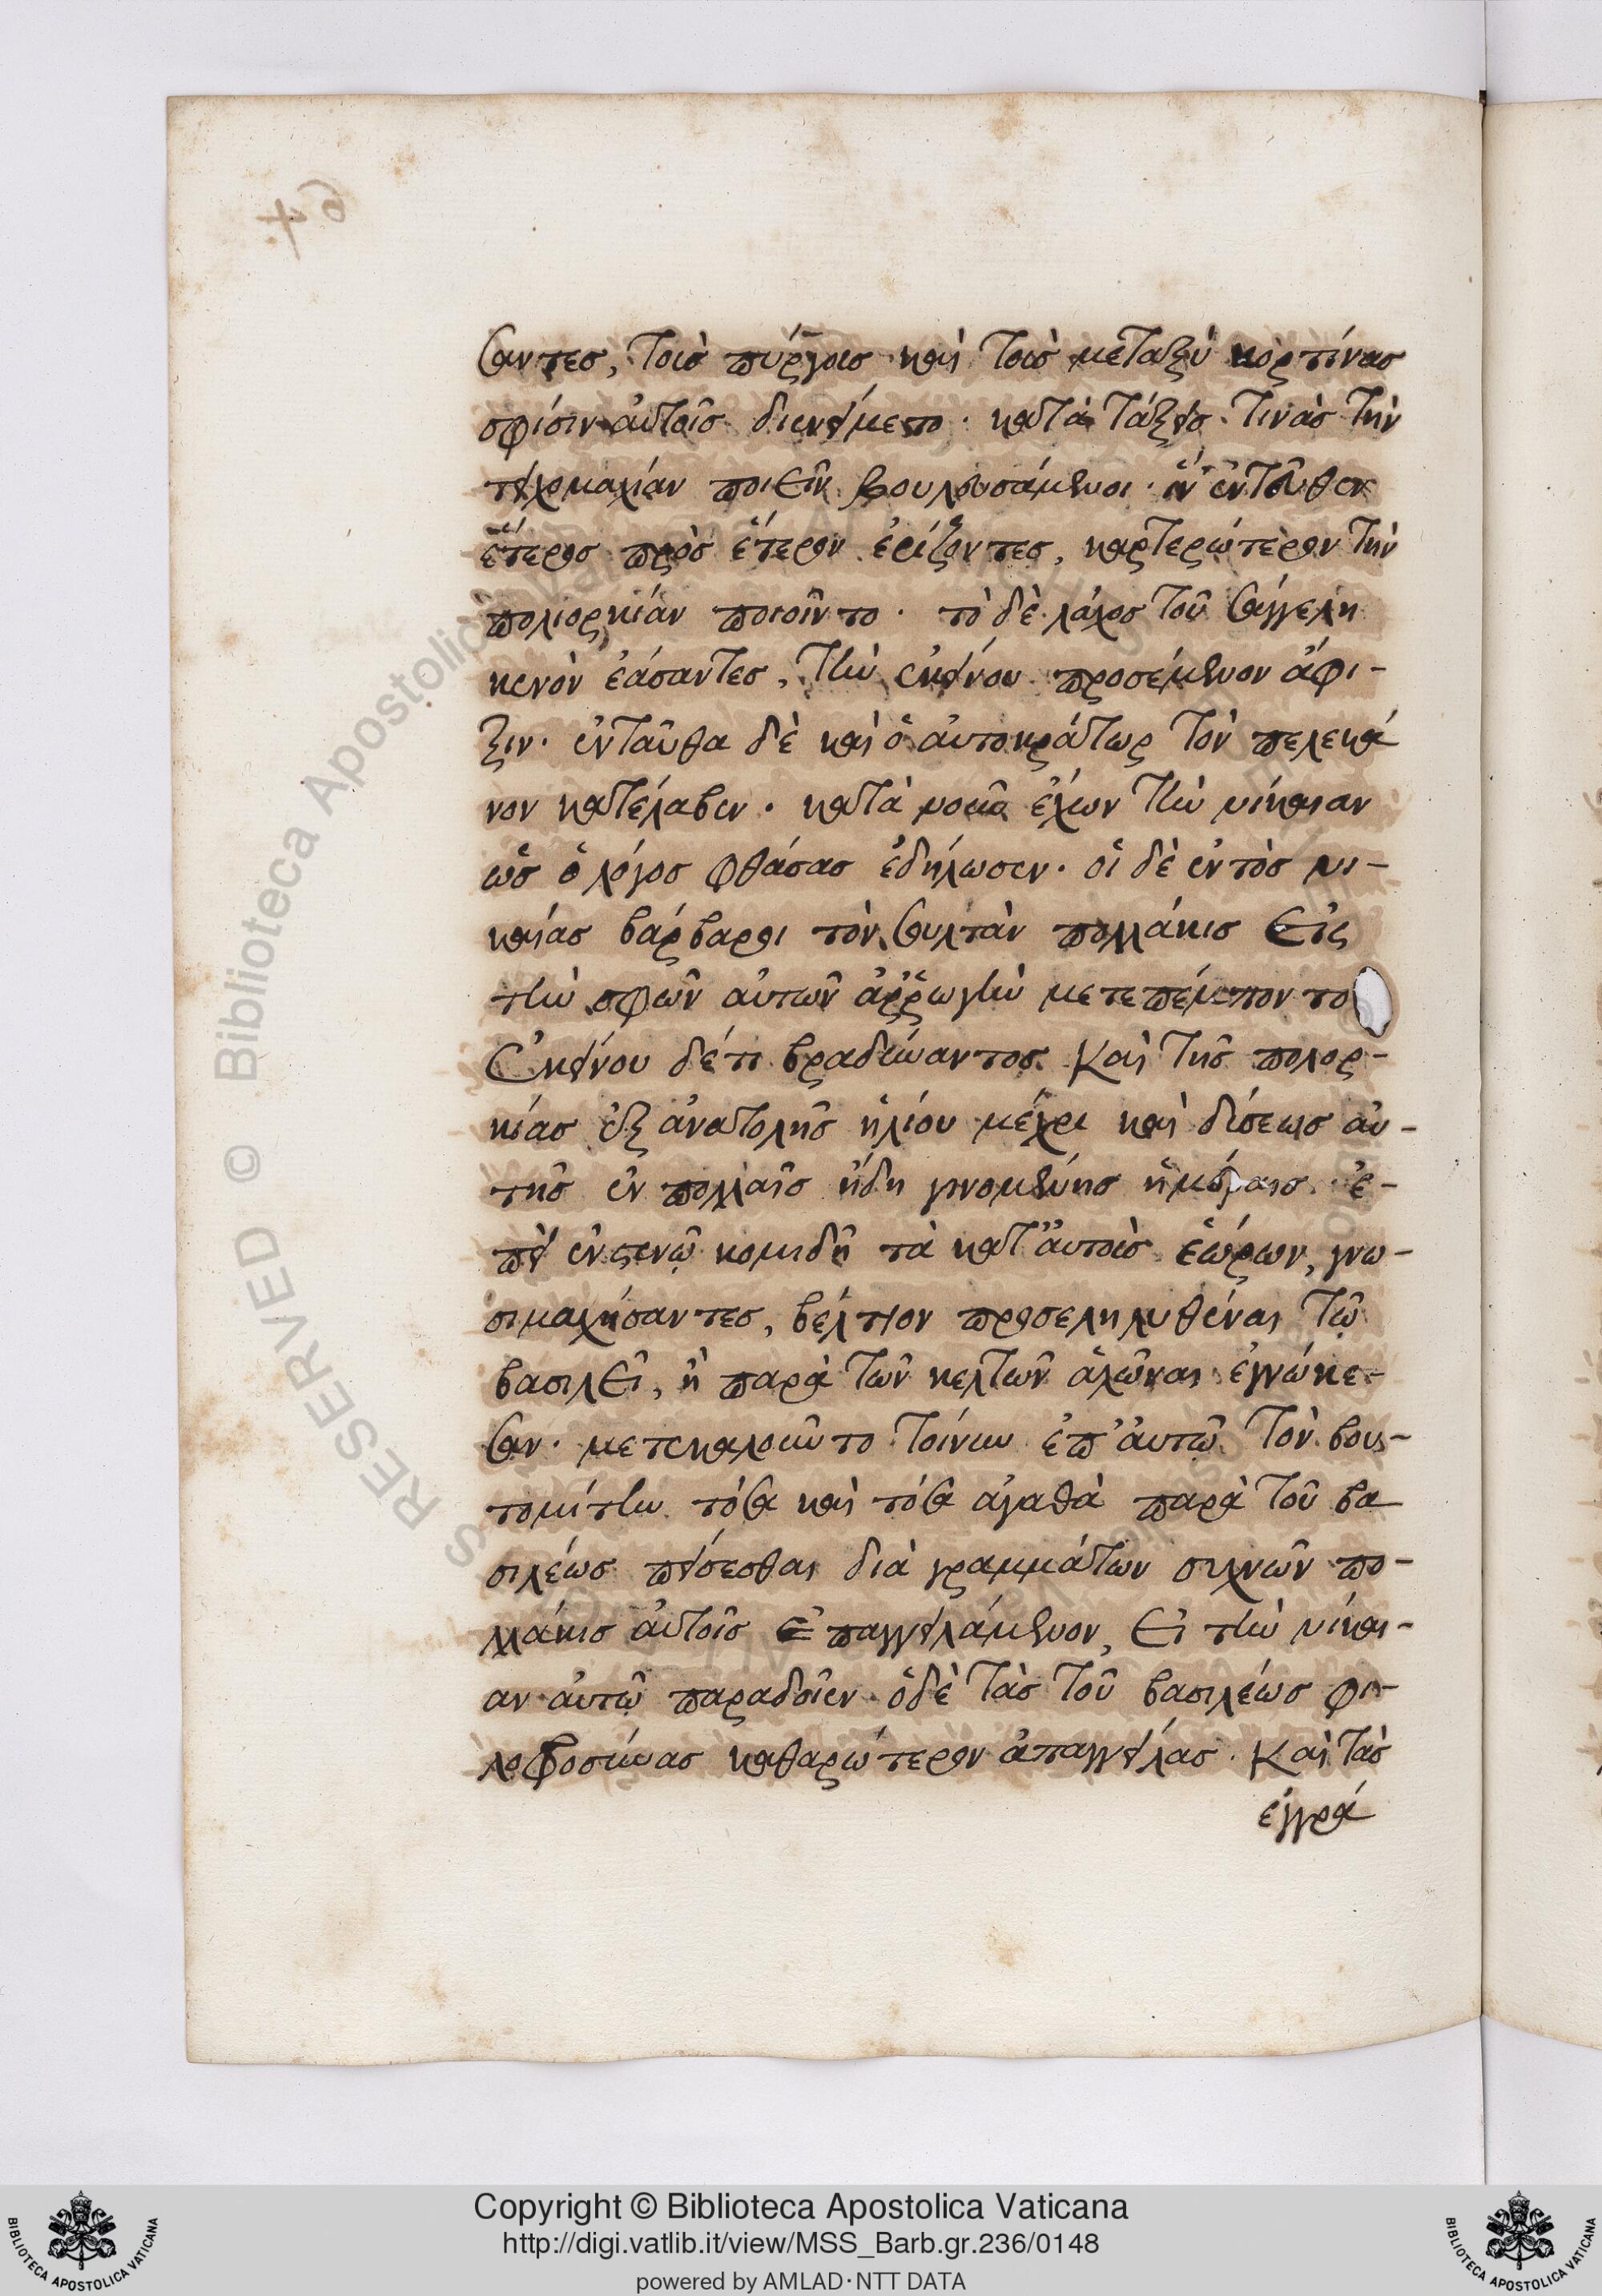 σαντες, τοὺς πύργους καὶ τοὺς μεταξὺ κορτίνας
σφίσιν αὐτοῖς διενείμαντο. κατὰ τάξεις τινὰς τὴν
τειχομαχίαν ποιεῖν βουλευσάμενοι. ἵν' ἐντεῦθεν
ἕτερος πρὸς ἕτερον ἐρίζοντες, καρτερώτερον τὴν
πολιορκίαν ποιοῖντο. τὸ δὲ λάχος τοῦ σαγγέλη
κενὸν ἐάσαντες, τὴν ἐκείνου προσέμενον ἄφι-
ξιν. ἐνταῦθα δὲ καὶ ὁ αὐτοκράτωρ τὸν πελεκά
νον κατέλαβεν. κατὰ νοῦν ἔχων τὴν νίκαιαν
ὡς ὁ λόγος φθάσας ἐδήλωσεν. οἱ δὲ ἐντὸς νι-
καίας βάρβαροι τὸν σουλτὰν πολλάκις εἰς
τὴν σφῶν αὐτῶν ἀῤῥωγὴν μετεπέμποντο
ἐκείνου δέτι βραδύναντος. καὶ τῆς πολορ-
κίας ἐξ ἀνατολῆς ἡλίου μέχρι καὶ δύσεως αὐ-
τῆς ἐν πολλαῖς ἤδη γινομένης ἡμέραις. ἐ-
πεὶ ἐν στενῷ κομιδῆ τὰ κατ' αὐτοὺς ἑώρων, γνω-
σιμαχήσαντες, βέλτιον προσεληλυθέναι τῷ
βασιλεῖ, ἢ παρὰ τῶν κελτῶν ἁλῶναι ἐγνώκε-
σαν. μετεκαλοῦντο τοίνυν ἐπ' αὐτῷ τὸν βου-
τομίτην τόσα καὶ τόσα ἀγαθὰ παρὰ τοῦ βα
σιλέως πείσεσθαι διὰ γραμμάτων συχνῶν πο-
λλάκις αὐτοῖς ἐπαγγειλάμενον, εἰ τὴν νίκαι-
αν αὐτῷ παραδοῖεν. ὁ δὲ τὰς τοῦ βασιλέως φι-
λοφροσύνας καθαρώτερον ἀπαγγείλας. καὶ τὰς
ἐγγρά
64
Copyright © Biblioteca Apostolica Vaticana
http://digi.vatlib.it/view/MSS_Barb.gr.236/0148
powered by AMLAD·NTT DATA
BIBLIOTECA APOSTOLICA VATICANA
BIBLIOTECA APOSTOLICA VATICANA